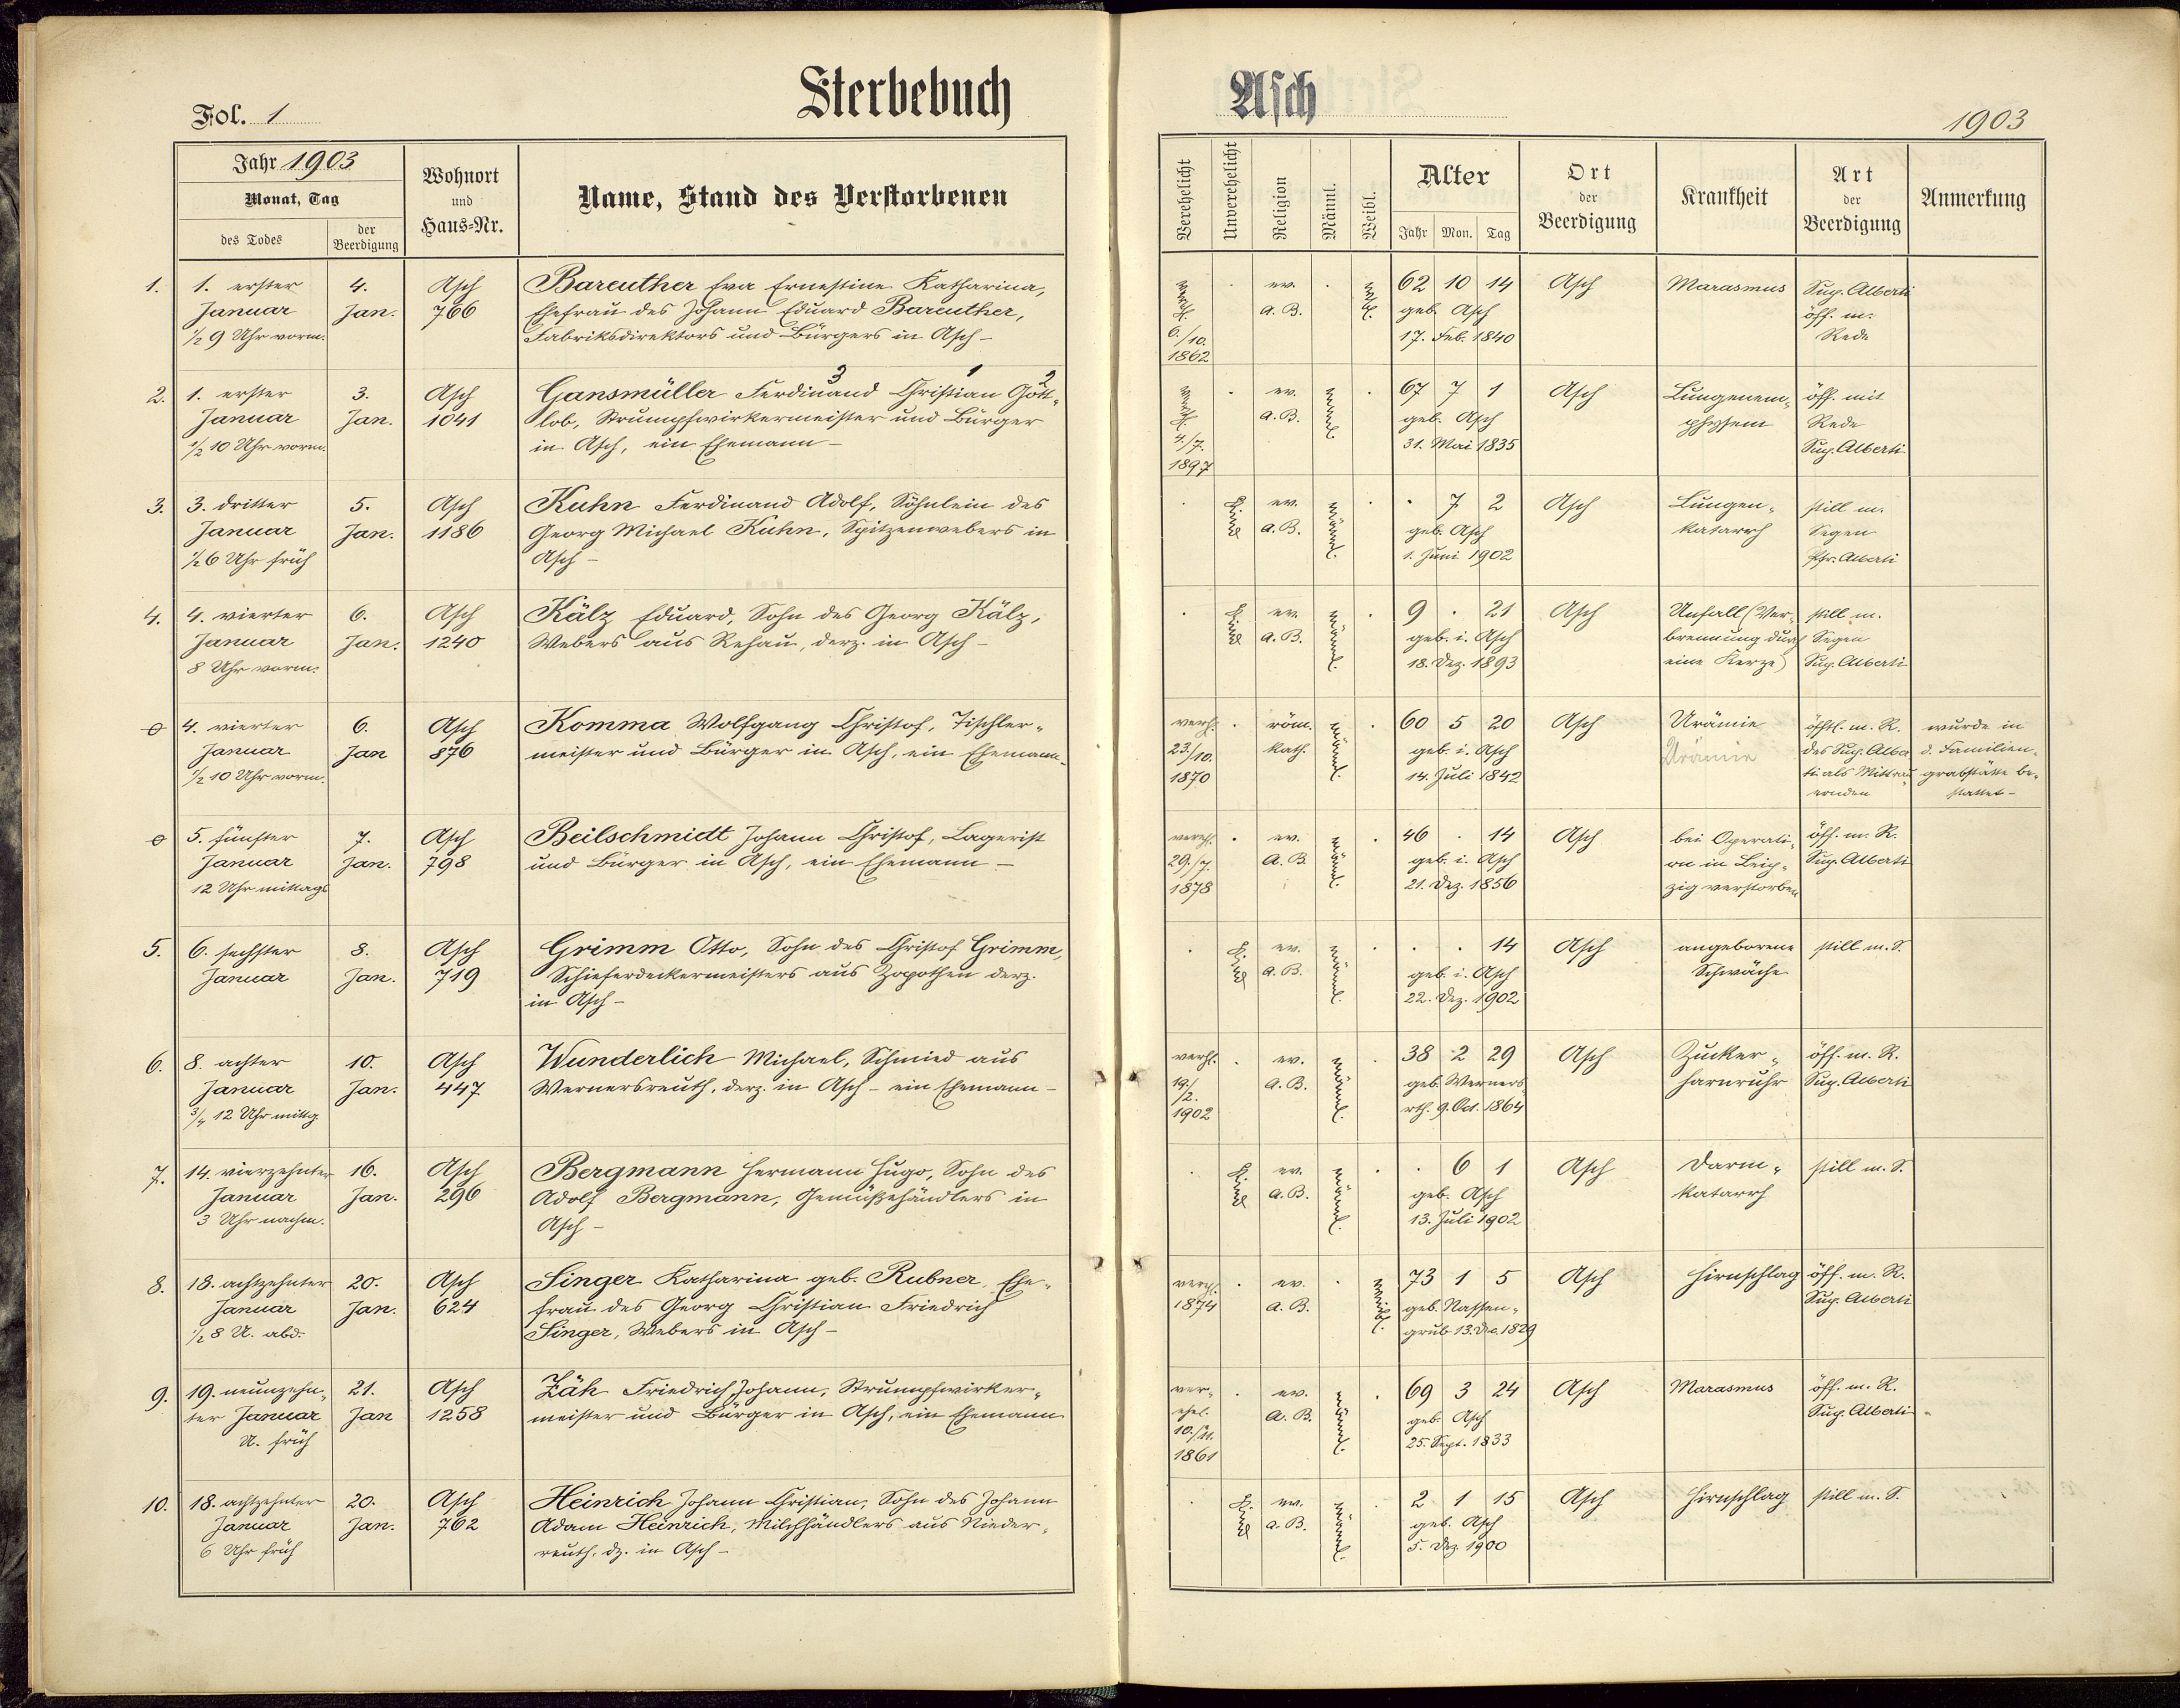 Fol. 1
Sterbebuch
Asch
1903
Jahr 1903
Monat, Tag
des Todes
der Beerdigung
Wohnort und Haus-Nr.
Name, Stand des Verstorbenen
Verehelicht
Unverehelicht
Religion
Männl.
Weibl.
Alter
Jahr Mon. Tag
Ort der Beerdigung
Krankheit
Art der Beerdigung
Anmerkung
1. 1. erster 4. Asch Bareuther Eva Ernestine Katharina,
Januar Jan. 766 Ehefrau des Johann Eduard Bareuther,
1/2 9 Uhr vorm. Fabriksdirektors und Bürgers in Asch –
verehl. 6./10. 1862
ev. A. B.
weibl.
62 10 14
geb. Asch
17. Feb. 1840
Asch
Marasmus
Sup. Alberti
öff. m.
Rede
3 1 2
2. 1. erster 3. Asch Gansmüller Ferdinand Christian Gott-
Januar Jan. 1041 lob, Strumpfwirkermeister und Bürger
1/2 10 Uhr vorm. in Asch, ein Ehemann –
verehl. 4./7. 1897
ev. A. B.
männl.
67 7 1
geb. Asch
31. Mai 1835
Asch
Lungenem-
physem
öff. mit
Rede
Sup. Alberti
3. 3. dritter 5. Asch Kuhn Ferdinand Adolf, Söhnlein des
Januar Jan. 1186 Georg Michael Kuhn, Spitzenwebers in
1/2 6 Uhr früh Asch –
Kind
ev. A. B.
männl.
7 2
geb. Asch
1. Juni 1902
Asch
Lungen-
katarrh
still m.
Segen
Pfr. Alberti
4. 4. vierter 6. Asch Kälz Eduard, Sohn des Georg Kälz,
Januar Jan. 1240 Webers aus Rehau, derz. in Asch –
8 Uhr vorm.
Kind
ev. A. B.
männl.
9 . 21
geb. i. Asch
18. Dez. 1893
Asch
Unfall (Ver-
brennung durch
eine Kerze)
still m.
Segen
Sup. Alberti
0 4. vierter 6. Asch Komma Wolfgang Christof, Tischler-
Januar Jan 876 meister und Bürger in Asch, ein Ehemann
1/2 10 Uhr vorm.
verehl. 23./10. 1870
röm. kath.
männl.
60 5 20
geb. i. Asch
14. Juli 1842
Asch
Urämie
Urämie
öfftl. m. R.
des Sup. Alber
ti als Mittrau
ernden
wurde in
d. Familien-
grabstätte be-
stattet –
0 5. fünfter 7. Asch Beilschmidt Johann Christof, Lagerist
Januar Jan. 798 und Bürger in Asch, ein Ehemann –
12 Uhr mittags
verehl. 29./7. 1878
ev. A. B.
männl.
46 . 14
geb. i. Asch
21. Dez. 1856
Asch
bei Operati-
on in Leip-
zig verstorben
öff. m. R.
Sup. Alberti
5. 6. sechster 8. Asch Grimm Otto, Sohn des Christof Grimm,
Januar Jan. 719 Schieferdeckermeisters aus Zopothen derz.
in Asch –
Kind
ev. A. B.
männl.
. . 14
geb. i. Asch
22. Dez. 1902
Asch
angeborene
Schwäche
still m. S.
6. 8. achter 10. Asch Wunderlich Michael, Schmied aus
Januar Jan. 447 Wernersreuth, derz. in Asch – ein Ehemann –
3/4 12 Uhr mittg.
verehl. 19./2. 1902
ev. A. B.
männl.
38 2 29
geb. Werners
rth. 9. Oct. 1864
Asch
Zucker-
harnruhr
öff. m. R.
Sup. Alberti
7. 14. vierzehnter 16. Asch Bergmann Hermann Hugo, Sohn des
Januar Jan. 296 Adolf Bergmann, Gemüßehändlers in
3 Uhr nachm. Asch –
Kind
ev. A. B.
männl.
. 6 1
geb. Asch
13. Juli 1902
Asch
Darm-
katarrh
still m. S.
8. 18. achtzehnter 20. Asch Singer Katharina geb. Rubner, Ehe-
Januar Jan. 624 frau des Georg Christian Friedrich
1/2 8 U. abd. Singer, Webers in Asch –
verehl. 1874
ev. A. B.
weibl.
73 1 5
geb. Nassen-
grub 13. Dec. 1829
Asch
Hirnschlag
öff. m. R.
Sup. Alberti
9. 19. neunzehn- 21. Asch Zäh Friedrich Johann, Strumpfwirker-
ter Januar Jan 1258 meister und Bürger in Asch, ein Ehemann
U. früh
ver-
ehel.
10./11.
1861
ev. A. B.
männl.
69 3 24
geb. Asch
25. Sept. 1833
Asch
Marasmus
öff. m. R.
Sup. Alberti
10. 18. achtzehnter 20. Asch Heinrich Johann Christian, Sohn des Johann
Januar Jan. 762 Adam Heinrich, Milchhändlers aus Nieder-
6 Uhr früh reuth, dz. in Asch –
Kind
ev. A. B.
männl.
2 1 15
geb. Asch
5. Dez. 1900
Asch
Hirnschlag
still m. S.